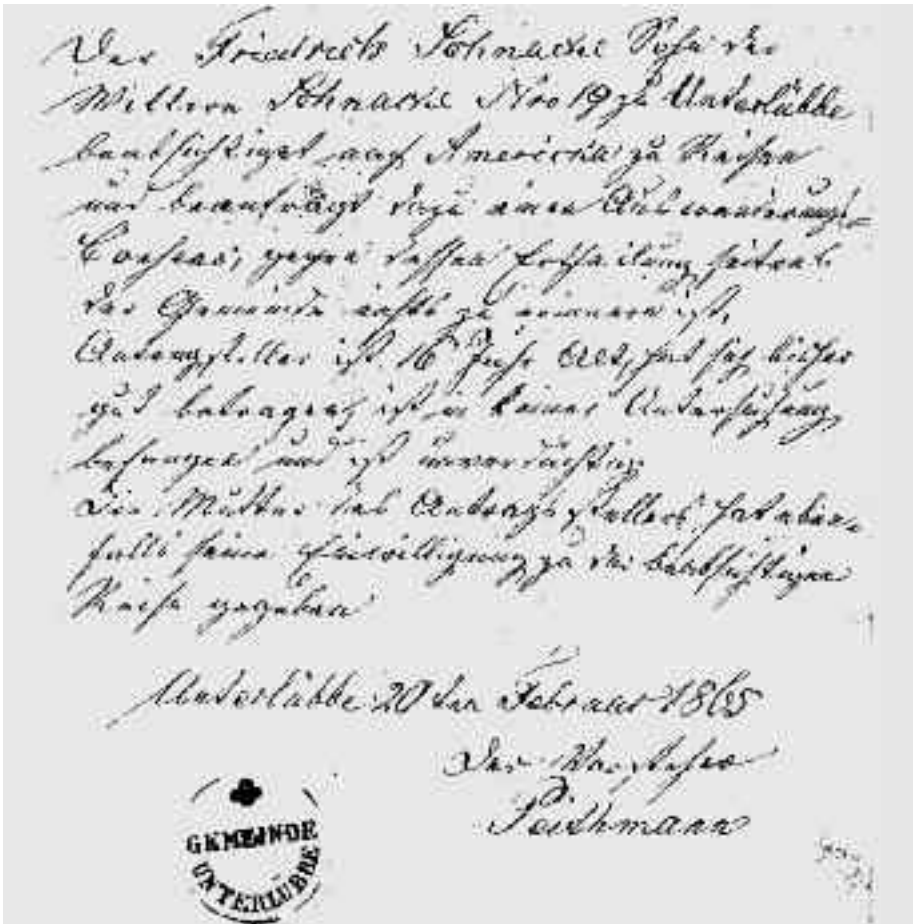 Der Friedrich Schnacke Sohn der
Wittwe Schnacke Nro 19 zu Unterlübbe
beabsichtiget nach Amerika zu Reisen
und beanträgt dazu einen Auswanderungs-
Consens, gegen dessen Ertheilung seitens
der Gemeinde nichts zu erinnern ist,
Antragsteller ist 16 Jahr Alt, hat sich bisher
gut betragen, ist in keiner Untersuchung
befangen und ist unverdächtig
Die Mutter des Antragstellers hat eben-
falls seine Einwilligung zu der beabsichtigen
Reise gegeben
Unterlübbe 20ten Februar 1865
Der Vorsteher
Peithmann
GEMEINDE
UNTERLÜBBE